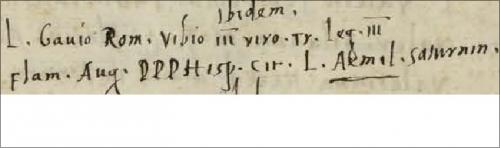 ibidem.
L. Gauio Rom. Vibio III viro. Tr. Leg. III
Flam. Aug. PPP Hisp. cit. L. Aemil. Saturnin.